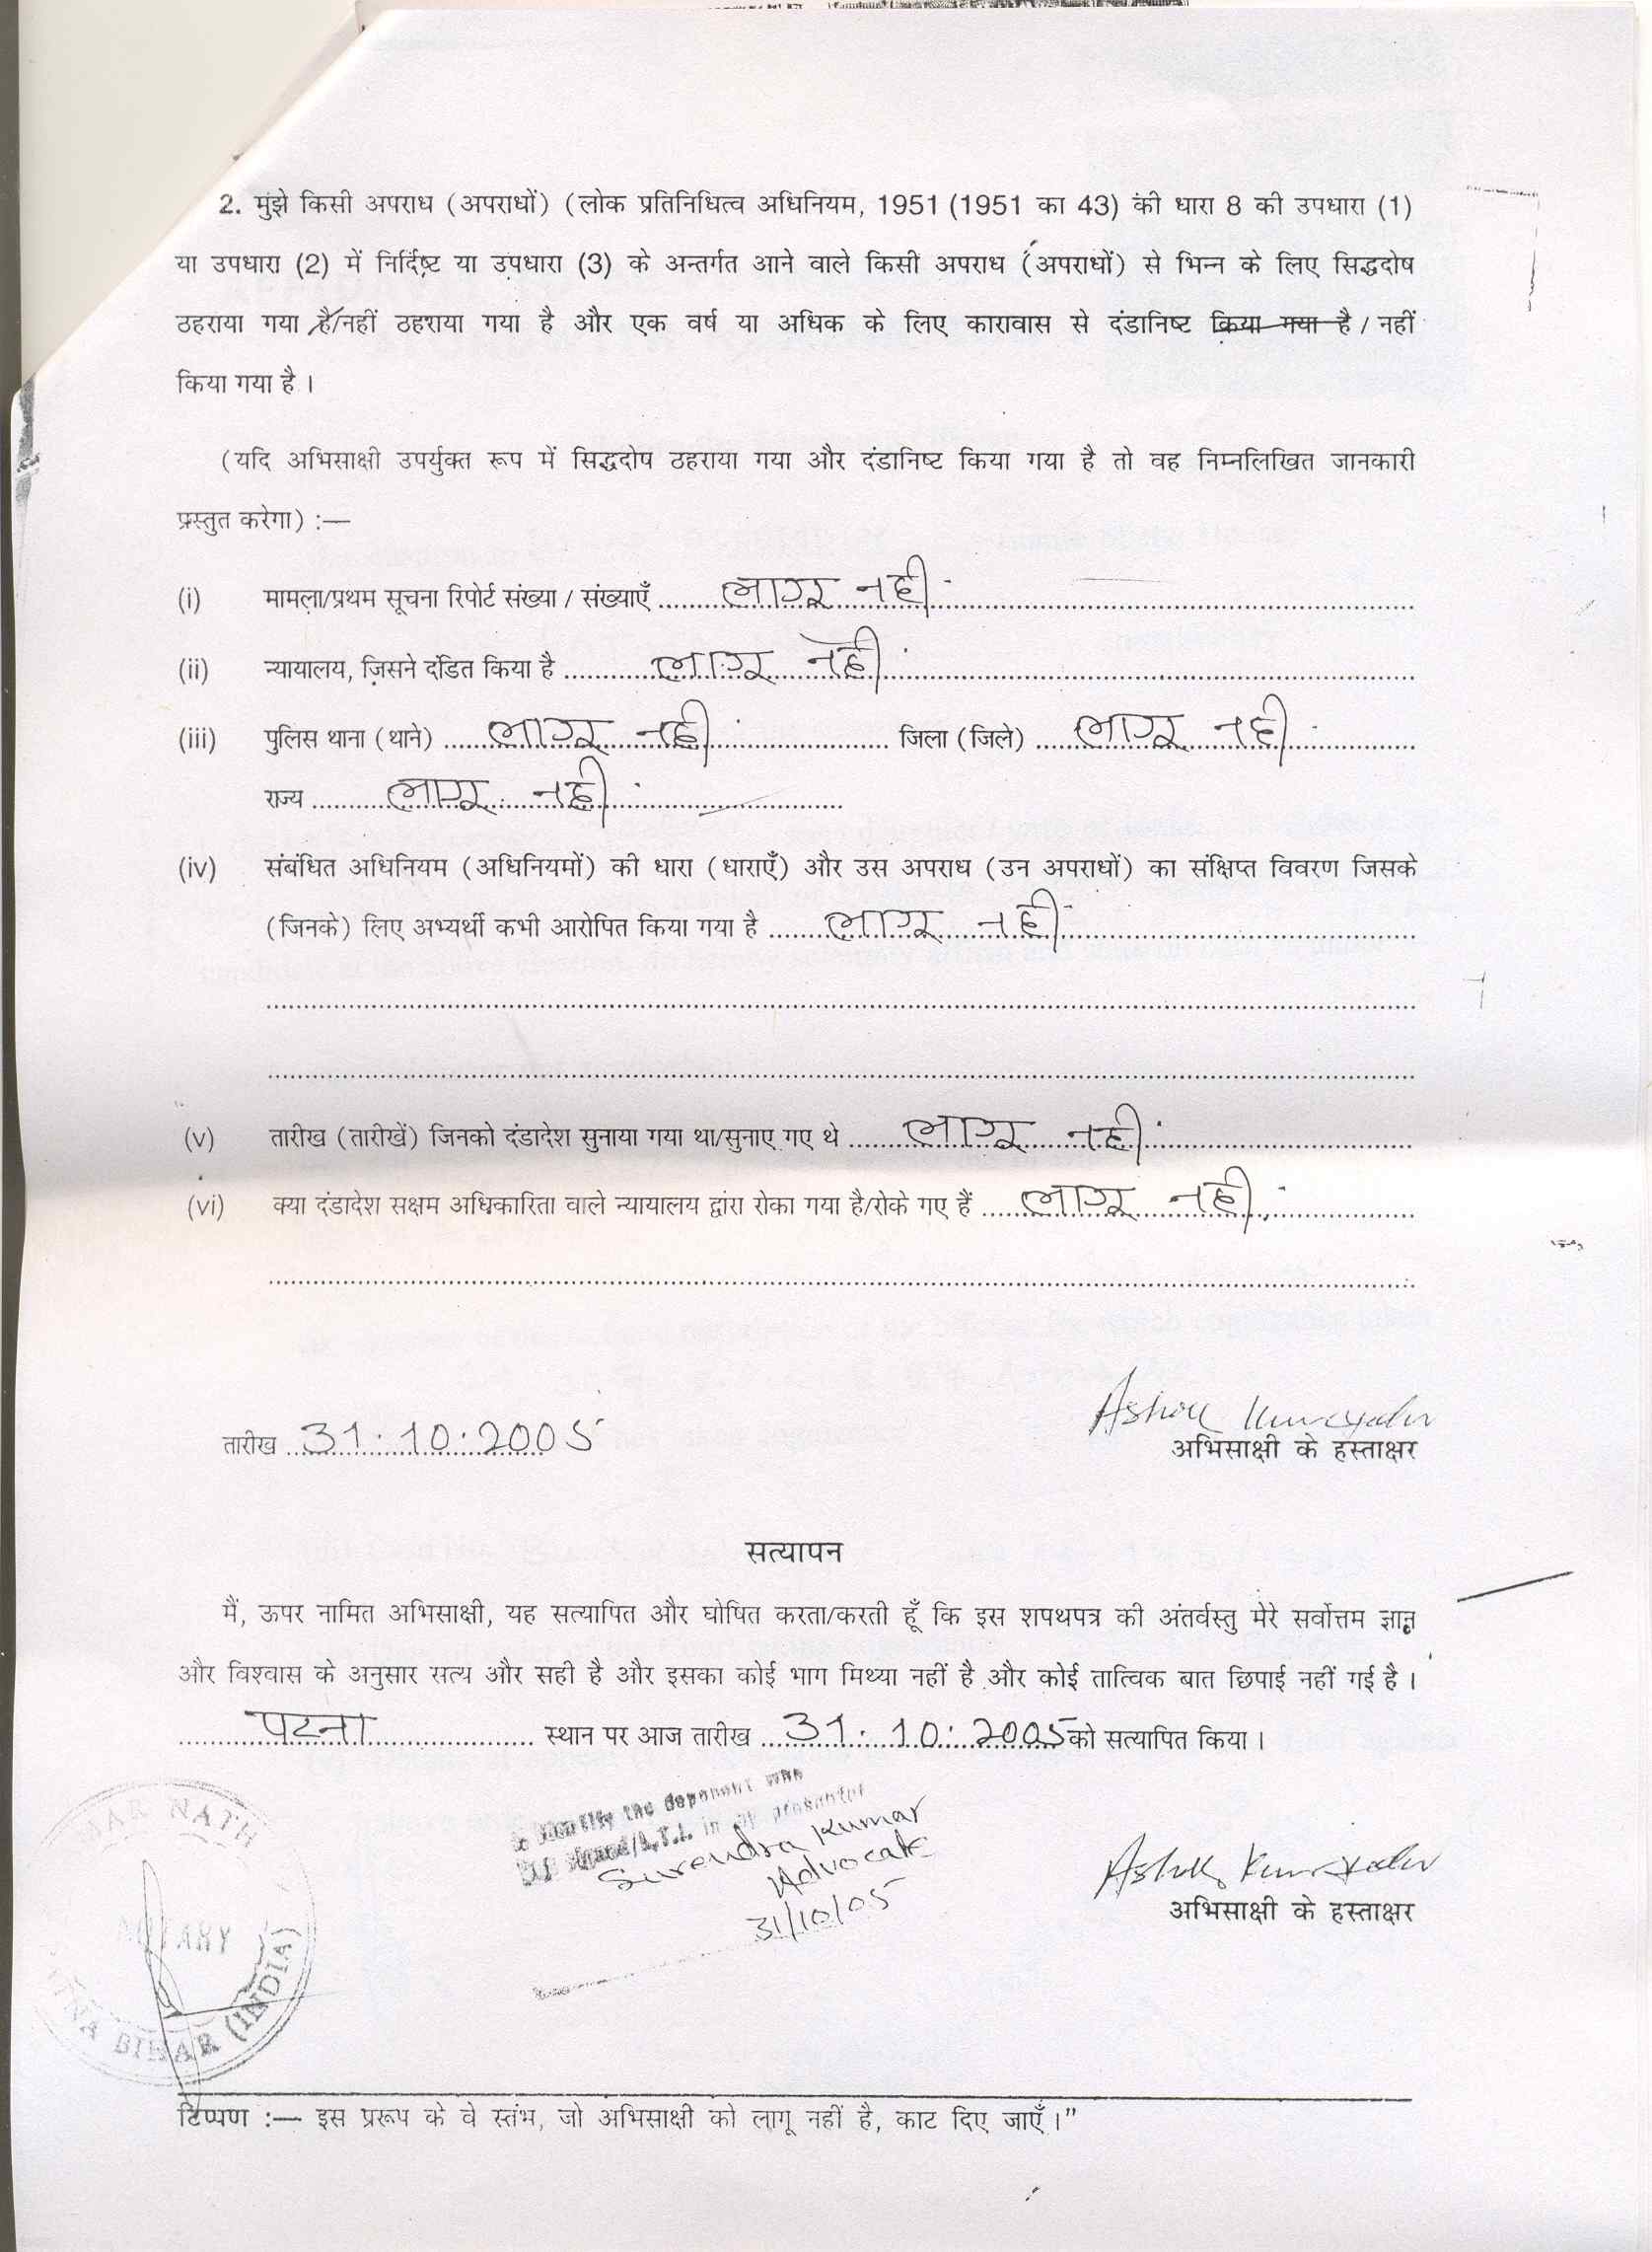 2. मुझे किसी अपराध (अपराधों) (लोक प्रतिनिधित्व अधिनियम, 1951 (1951 का 43) की धारा 8 की उपधारा (1)
या उपधारा (2) में निर्दिष्ट या उपधारा (3) के अन्तर्गत आने वाले किसी अपराध (अपराधों) से भिन्न के लिए सिद्धदोष
ठहराया गया है/नहीं ठहराया गया है और एक वर्ष या अधिक के लिए कारावास से दंडानिष्ट किया गया है / नहीं
किया गया है ।
(यदि अभिसाक्षी उपर्युक्त रूप में सिद्धदोष ठहराया गया और दंडानिष्ट किया गया है तो वह निम्नलिखित जानकारी
प्रस्तुत करेगा) :—
(i) मामला/प्रथम सूचना रिपोर्ट संख्या / संख्याएँ लागू नही
(ii) न्यायालय, जिसने दंडित किया है लागू नही
(iii) पुलिस थाना (थाने) लागू नही जिला (जिले) लागू नही
राज्य लागू नही
(iv) संबंधित अधिनियम (अधिनियमों) की धारा (धाराएँ) और उस अपराध (उन अपराधों) का संक्षिप्त विवरण जिसके
(जिनके) लिए अभ्यर्थी कभी आरोपित किया गया है लागू नही
(v) तारीख (तारीखें) जिनको दंडादेश सुनाया गया था/सुनाए गए थे लागू नही
(vi) क्या दंडादेश सक्षम अधिकारिता वाले न्यायालय द्वारा रोका गया है/रोके गए हैं लागू नही
Ashok
तारीख 31.10.2005
अभिसाक्षी के हस्ताक्षर
सत्यापन
मैं, ऊपर नामित अभिसाक्षी, यह सत्यापित और घोषित करता/करती हूँ कि इस शपथपत्र की अंतर्वस्तु मेरे सर्वोत्तम ज्ञान
और विश्वास के अनुसार सत्य और सही है और इसका कोई भाग मिथ्या नहीं है और कोई तात्विक बात छिपाई नहीं गई है ।
पटना स्थान पर आज तारीख 31.10.2005 को सत्यापित किया ।
the deponent who
in my
Surendra Kumar
Advocate
31/10/05
Ashok
अभिसाक्षी के हस्ताक्षर
NATH
NOTARY
BIHAR (INDIA)
टिप्पण :— इस प्ररूप के वे स्तंभ, जो अभिसाक्षी को लागू नहीं है, काट दिए जाएँ ।"